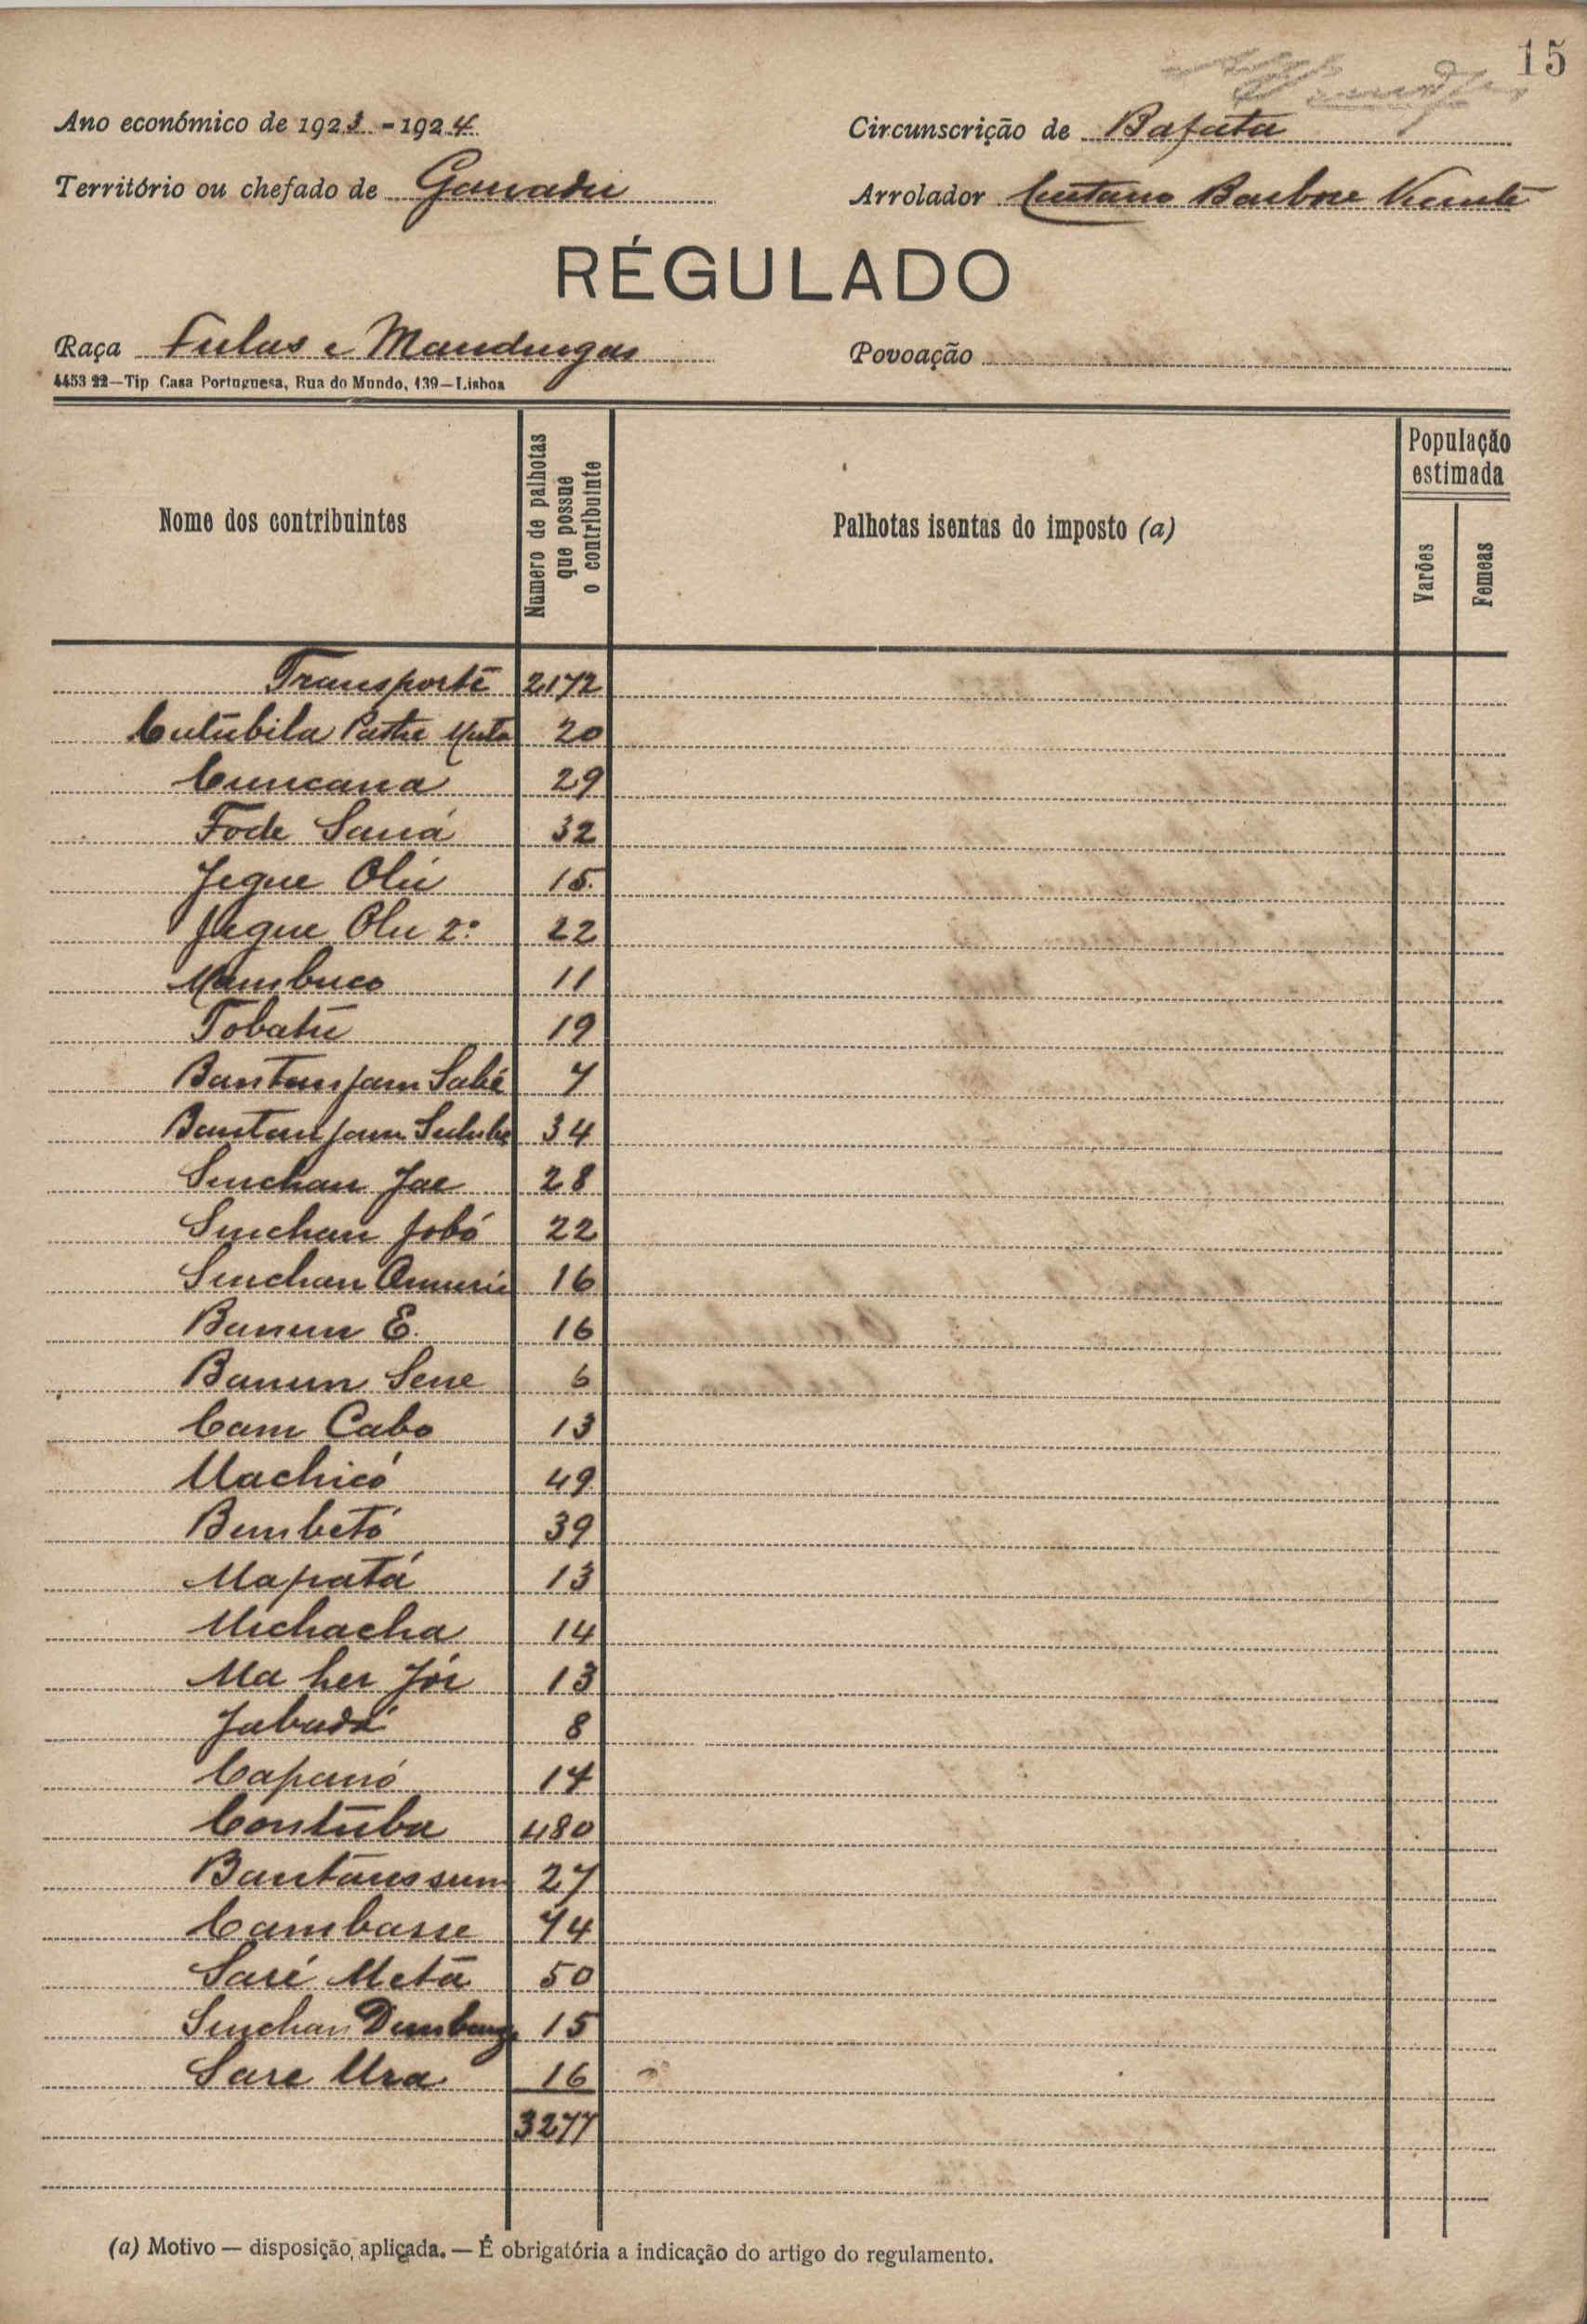 15
Ano económico de 1923 - 1924
Circunscrição de Bafata
Território ou chefado de Ganadu
Arrolador Caetano Barbosa Vicente
RÉGULADO
Raça Fulas e Mandingas
Povoação
4453 22—Tip Casa Portuguesa, Rua do Mundo, 139—Lisboa
Nome dos contribuintes
Número de palhotas que possue o contribuinte
Palhotas isentas do imposto (a)
População estimada
Varões
Femeas
Transporte 2172
Cutubila 20
Cuncana 29
Fode Saná 32
Jegue Olu 15
Jegue Olu 2º 22
Mambuco 11
Tobatu 19
Bantanjam Sabé 7
Bantanjam 34
Sinchan Jae 28
Sinchan Jobó 22
Sinchan 16
Banun E. 16
Banun Sene 6
Cam Cabo 13
Machicó 49
Bembetó 39
Mapatá 13
Michacha 14
Ma her Joi 13
Jabudá 8
Capanó 14
Contuba 480
Bantanssum 27
Cambasse 74
Saré Metá 50
Sinchan 15
Sare Ura 16
3277
(a) Motivo — disposição, aplicada. — É obrigatória a indicação do artigo do regulamento.